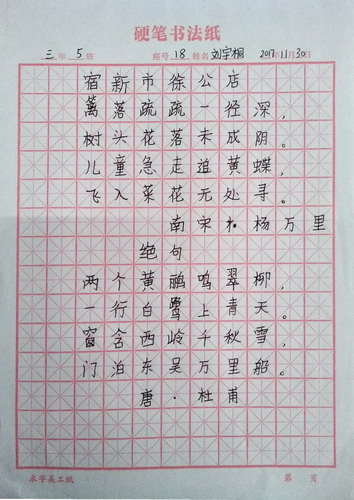 硬笔书法纸
三年5班 座号18 姓名刘宇桐 2017年11月30日
宿新市徐公店
篱落疏疏一径深，
树头花落未成阴。
儿童急走追黄蝶，
飞入菜花无处寻。
南宋 杨万里
绝句
两个黄鹂鸣翠柳，
一行白鹭上青天。
窗含西岭千秋雪，
门泊东吴万里船。
唐·杜甫
第 页